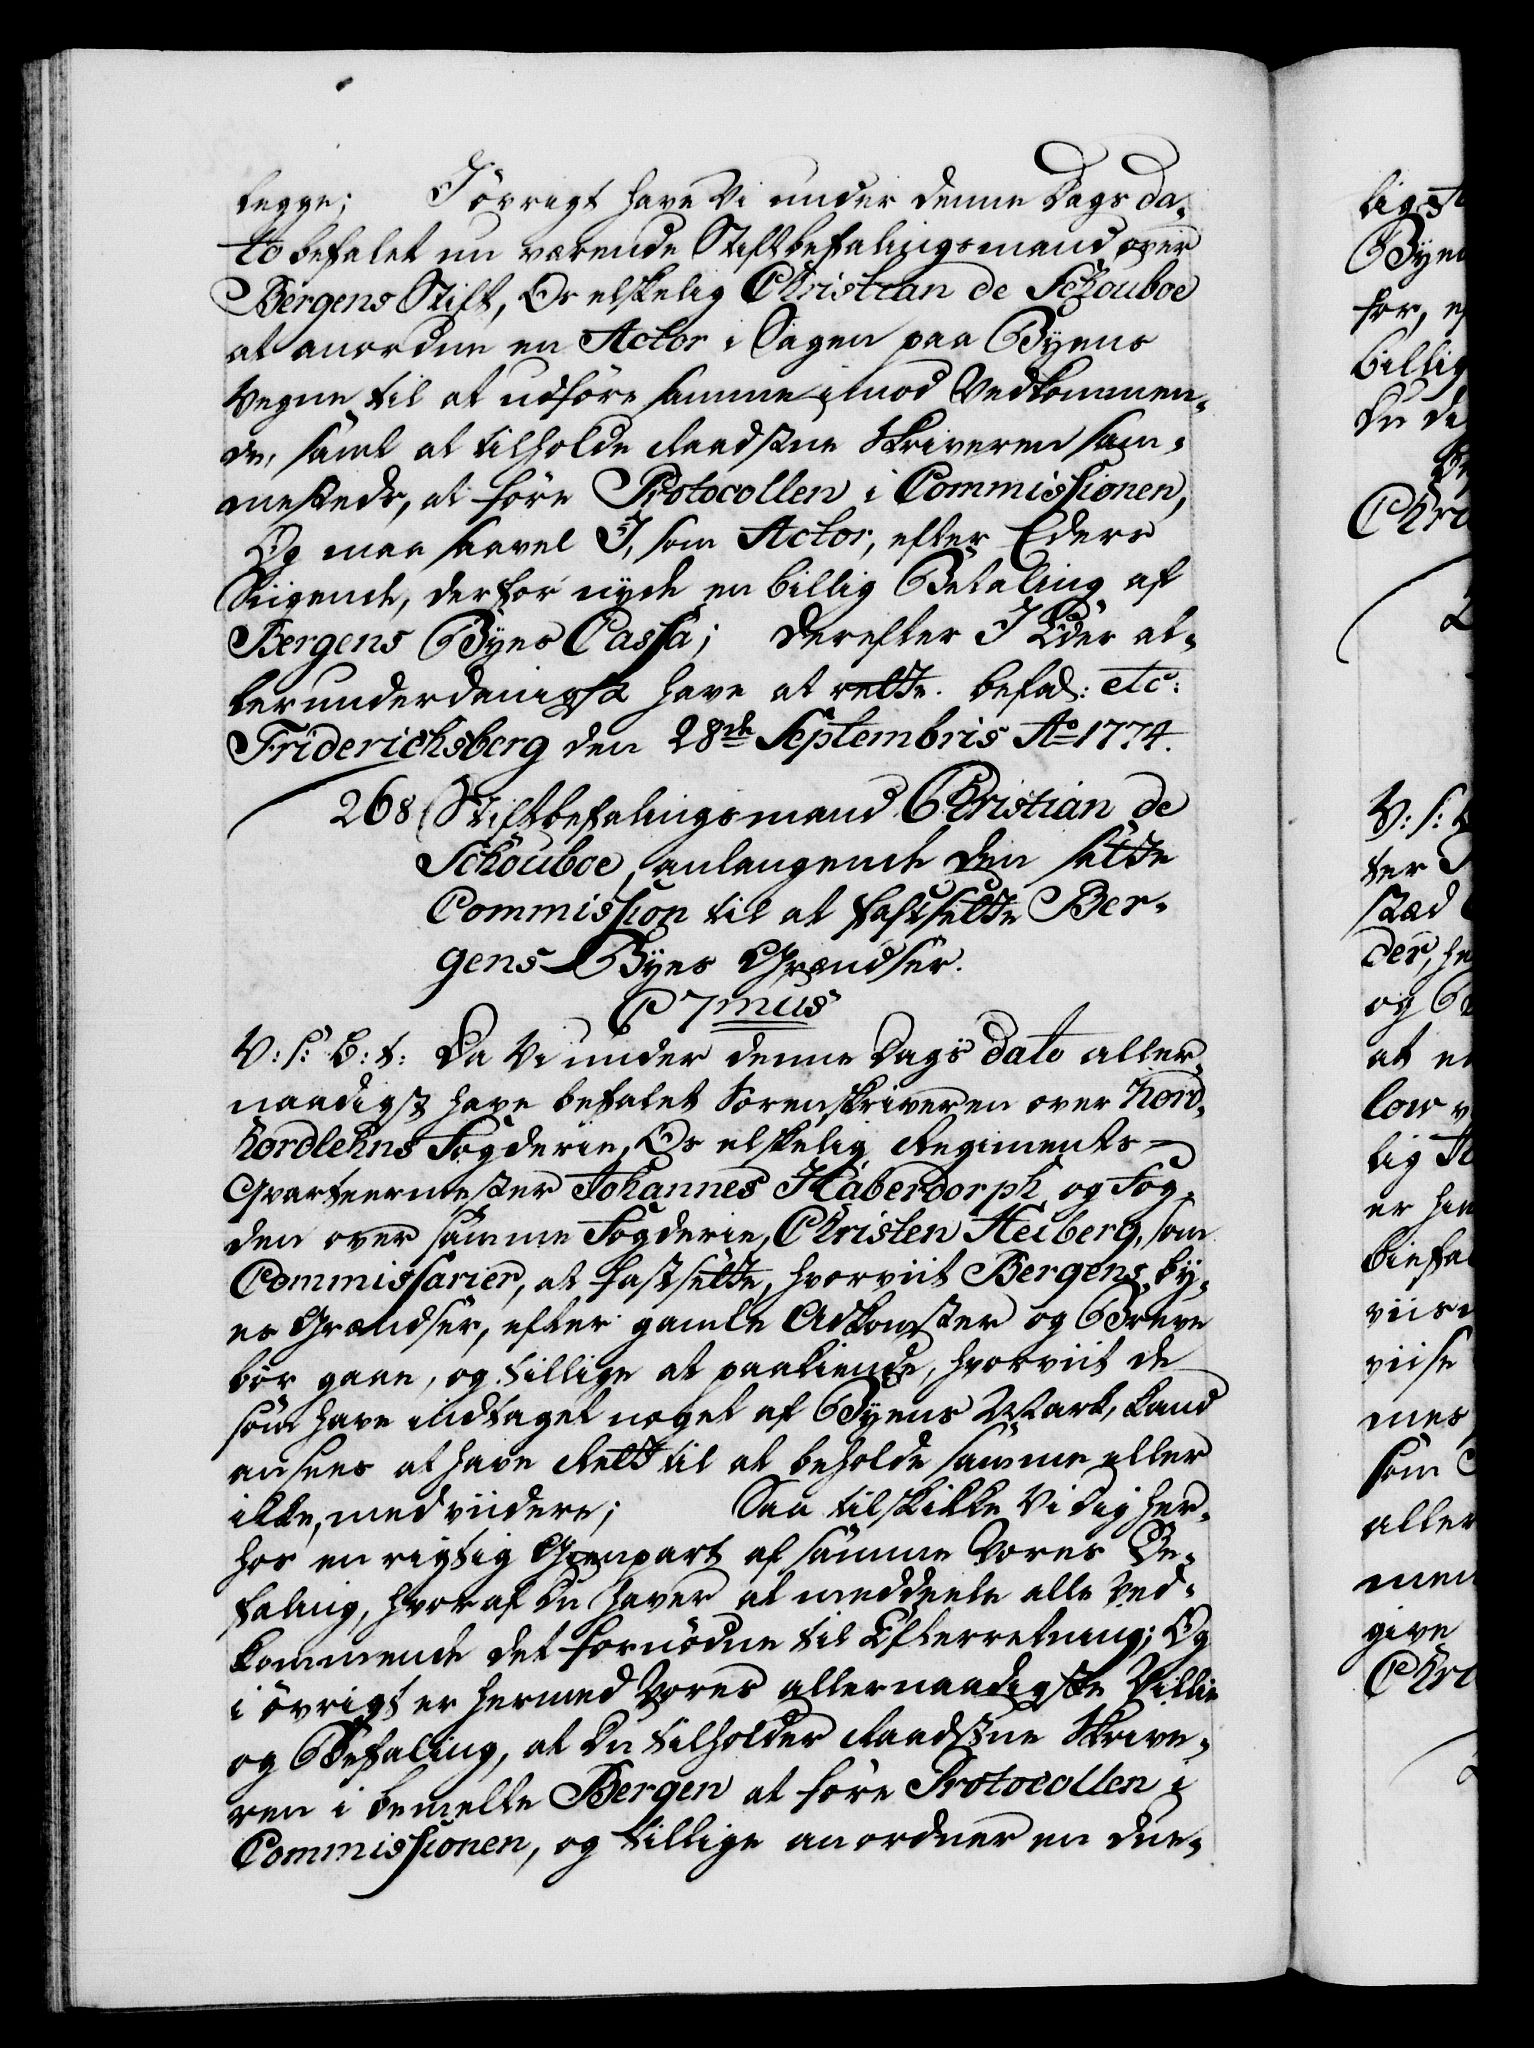 legge; I övrigt have Vi under denne Dags da-
to befalet nu værende Stiftbefalingsmand over
Bergens Stift, Os elskelig Christian de Schouboe
at anordne en Actor i Sagen paa Byens
Vegne til at udföre samme imod Vedkommen-
de, samt at tilholde Raadstue Skriveren sam-
mesteds, at före Protocollen i Commissionen,
Og maa saavel I, som Actor, efter Eders
Siigende, derfor nyde en billig Betaling af
Bergens Byes Cassa; Derefter I Eder al-
lerunderdanigst have at rette. befal: etc:
Friderichsberg den 28de Septembris Ao 1774.
268 Stiftbefalingsmand Christian de
Schouboe, anlangende den satte
Commission til at fastsætte Ber-
gens Byes Grændser.
C 7mus
V: s: G: t: Da Vi under denne Dags dato aller-
naadigst have befalet Sorenskriveren over Nord-
hordlehns Fogderie, Os elskelig Regiments-
Qvarteermester Johannes Haberdorph, og Fog-
den over samme Fogderie, Christen Heiberg, som
Commissarier, at fastsætte, hvorviit Bergens By-
es Grændser, efter gamle Adkomster og Breve
bör gaae, og tillige at paakiende, hvorviit de
som have indtaget noget af Byens Mark, kand
ansees at have Rett til at beholde samme eller
ikke, med viidere; Saa tilskikke Vi dig her-
hos en rigtig Gienpart af samme Vores Be-
faling, hvoraf du haver at meddeele alle Ved-
kommende det fornödne til Efterretning; Og
i övrigt er hermed Vores allernaadigste Villie
og Befaling, at du tilholder Raadstue Skrive-
ren i bemelte Bergen at före Protocollen i
Commissionen, og tillige anordner en due-